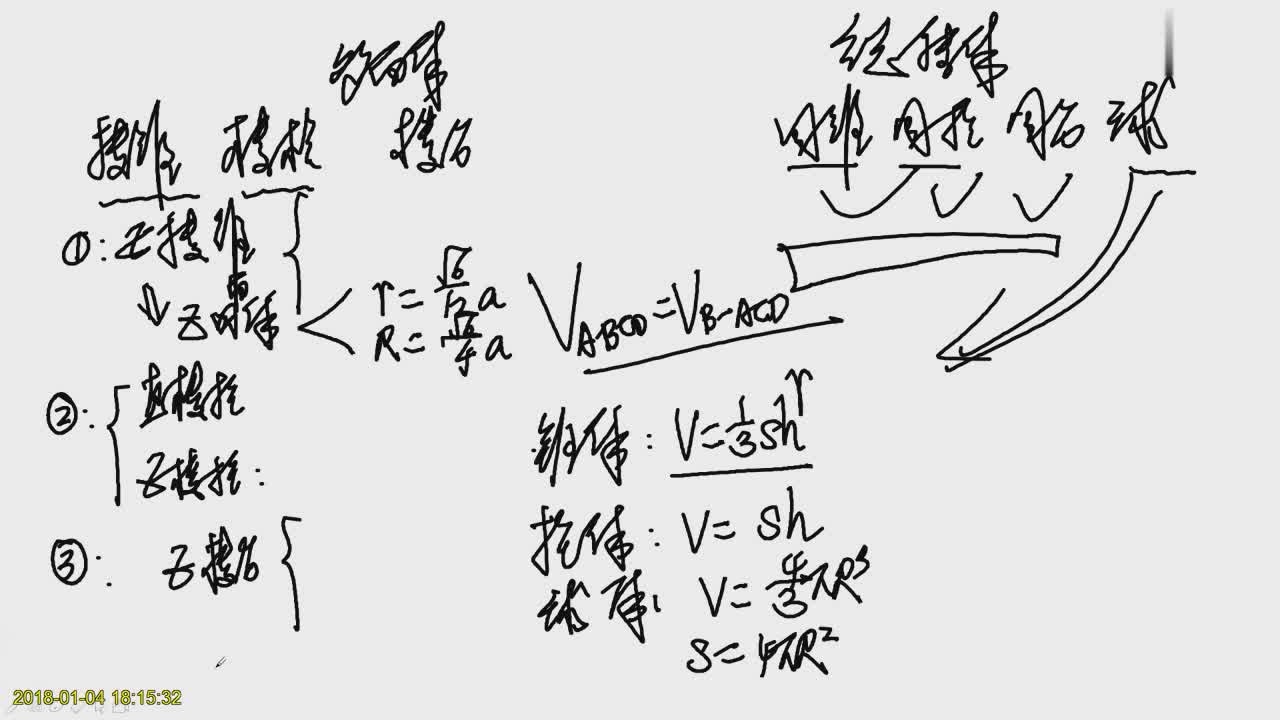 多面体
棱锥 棱柱 棱台
①:正棱锥
⇓ 正四面体
r=√6/12 a
R=√6/4 a
②:
直棱柱
正棱柱:
③: 正棱台
旋转体
圆锥 圆柱 圆台 球
V_ABCD=V_B-ACD
锥体: V=1/3 sh
r
柱体: V=sh
球体: V=4/3 πR³
S=4πR²
2018-01-04 18:15:32